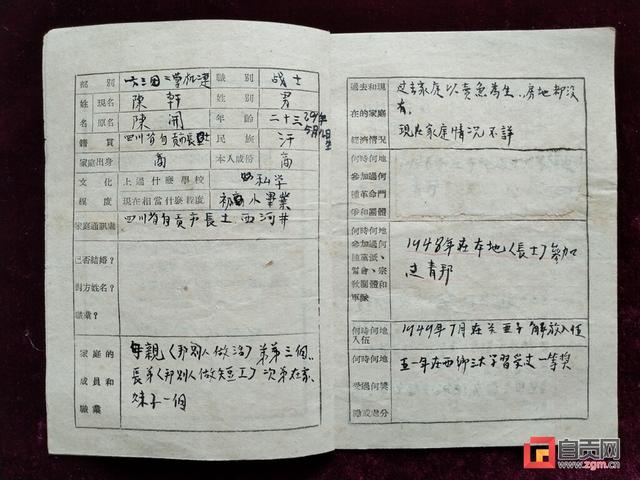 部別 六三団二营机連 職別 战士
姓現名 陳軒 性別 男
名原名 陳開 年齡 二十三
籍貫 四川省自貢市長土 民族 汗
家庭出身 商 本人成份 商
文化 上過什麽學校 私学
程度 現在相當什麽程度 初小畢業
家庭通訊處 四川省自贡市長土西河井
已否結婚?
對方姓名?
職業?
家庭的 母親(邦別人做活)弟弟三個.
成員和 長弟(邦別人做矢工)次弟在家.
職業 妹子一個
過去和現 过去家庭以卖魚為生.房地都没
在的家庭 有.
經濟情况 現在家庭情况不詳
何時何地
參加過何
種革命門
爭和團體
何時何地 1948年在本地(長土)參加
參加過何 过青邦
種黨派、
會、宗
教團體和
軍隊
何時何地 1949年7月在 解放入伍
入伍
何時何地 五一年在西 学習 一等獎
受過何獎
勵或處分
自贡网
www.zgm.cn